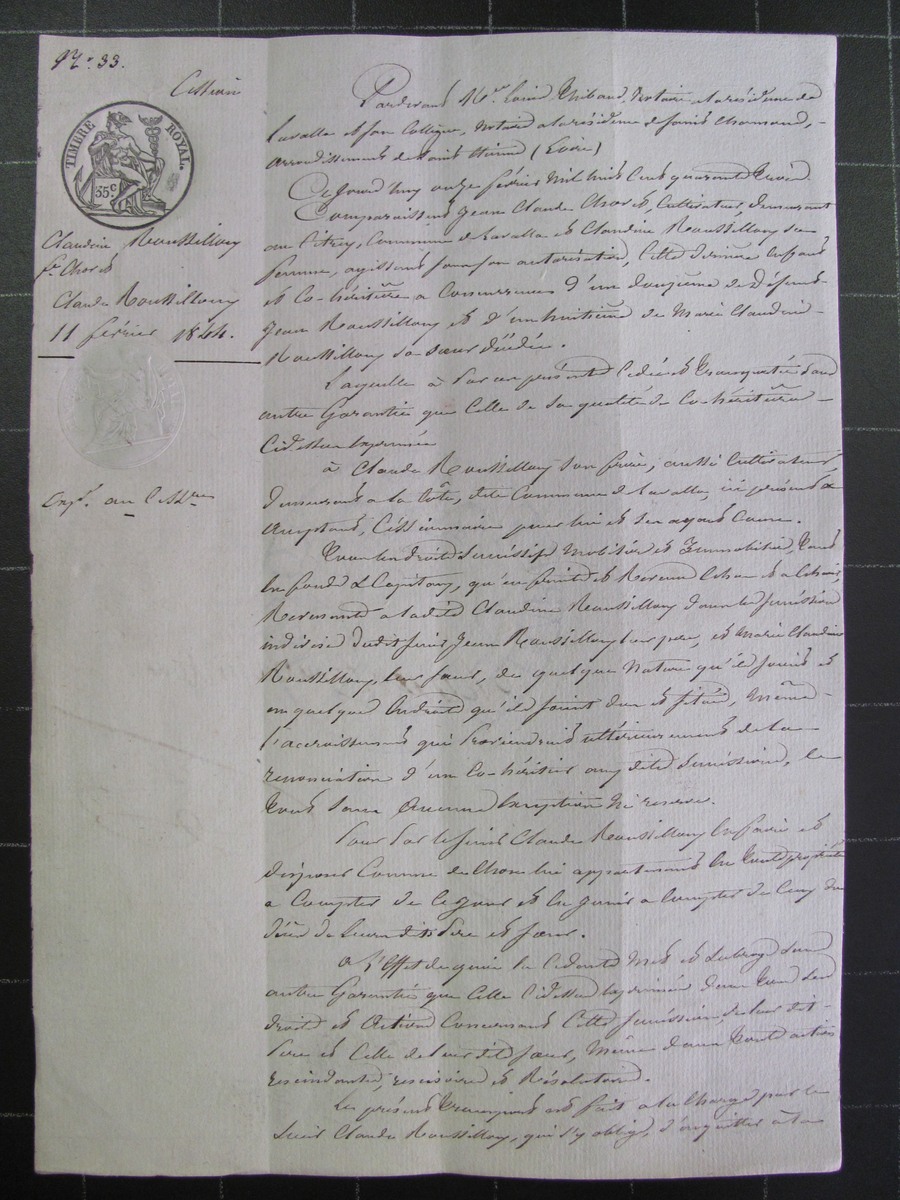 N.° 33.
Cession
TIMBRE ROYAL.
35 c.
Claudine Roussillony
f.e Chorel
Claude Roussillony
11 février 1844.
Exp. au Cessre
Pardevant Mtre Louis Thibaud, Notaire à la résidence de
Lavalla et son Collègue, Notaire à la résidence de Saint Chamond,
arrondissement de Saint Etienne (Loire)
Ce jourd'huy onze février Mil huit Cent quarante
Comparaissent Jean Claude Chorel, Cultivateur, demeurant
au Citrey, Commune de Lavalla et Claudine Roussillony sa
femme, agissant sous son autorisation, Cette dernière enfant
et Co-héritière à Concurrence d'un douzième de Défunt
Jean Roussillony et d'un huitième de Marie Claudine
Roussillony sa sœur décédée.
Laquelle a par ces présentes Cédé et transporté sans
autre Garantie que Celle de sa qualité de Co-héritière
Cidessus exprimée
à Claude Roussillony son frère, aussi Cultivateur,
demeurant à la dite Commune de Lavalla, ici présent &
acceptant, Cessionnaire pour lui et ses ayant Cause.
Tous les droits Successifs Mobiliers et Immobiliers, tant
en fonds & Capitaux, qu'en fruits et Revenus échus et à échoir,
Revenant à ladite Claudine Roussillony dans la succession
indivise dudit Jean Roussillony leur père, et Marie Claudine
Roussillony, leur sœur, de quelque Nature qu'ils soient et
en quelque Endroit qu'ils soient dus et situés, Même
l'accroissement qui proviendrait ultérieurement de la
renonciation d'un Co-héritier auxdites Successions, le
tout sans Aucune Exception Ni reserve.
Pour Par le Claude Roussillony en faire et
disposer Comme de Chose lui appartenant en toute propriété
à Compter de Ce jour et en jouir à Compter de Celui du
décès de leurs dits Père et sœur.
A l'Effet de quoi la Cédante Met et Subroge sans
autre Garantie que Celle Cidessus exprimée dans tous ses
droits et Actions Concernant Cette succession de leur dit
Père et Celle de leur dite sœur, Même dans toutes actions
rescindantes, rescisoires et Résolutoires.
Le présent transport est fait à la Charge par le
Claude Roussillony, qui s'y oblige, d'acquitter à la